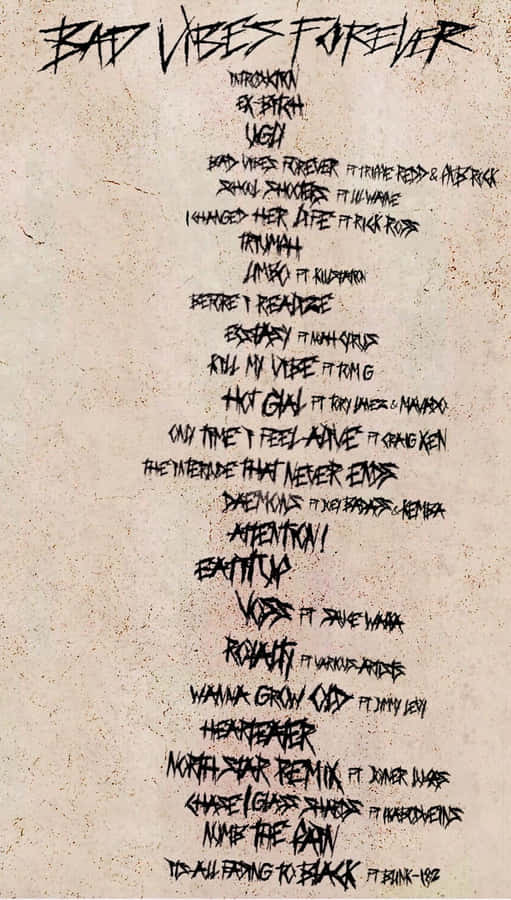 BAD VIBES FOREVER
INTRODUCTION
EX-BITCH
UGLY
BAD VIBES FOREVER FT TRIPPIE REDD & PNB ROCK
SCHOOL SHOOTERS FT LIL WAYNE
I CHANGED HER LIFE FT RICK ROSS
TRIUMPH
LIMBO FT KILLSTATION
BEFORE I REALIZE
ECSTASY FT NOAH CYRUS
KILL MY VIBE FT TOM G
HOT GYAL FT TORY LANEZ & MAVADO
ONLY TIME I FEEL ALIVE FT CRAIG XEN
THE INTERLUDE THAT NEVER ENDS
DAEMONS FT JOEY BADASS & KEMBA
ATTENTION!
EAT IT UP
VOSS FT SAUCE WALKA
ROYALTY FT VARIOUS ARTISTS
WANNA GROW OLD FT JIMMY LEVY
HEARTEATER
NORTH STAR REMIX FT JOYNER LUCAS
CHASE / GLASS SHARDS FT IKABODVEINS
NUMB THE PAIN
IT'S ALL FADING TO BLACK FT BLINK-182